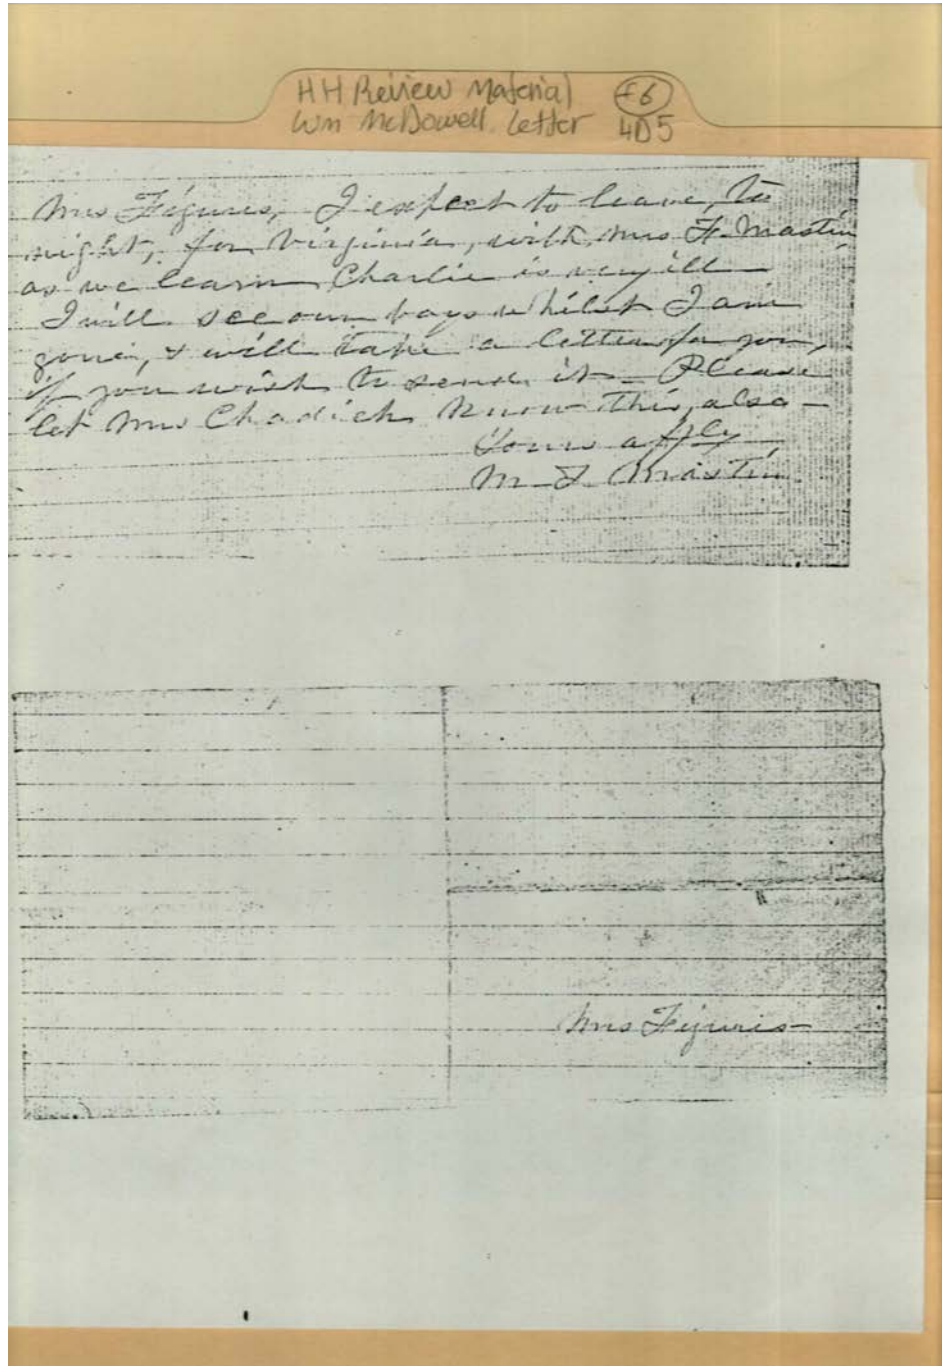 HH Review Material F6
Wm McDowell Letter 4D5
Mrs Figures, I expect to leave, to
night, for Virginia, with Mrs F. Mastin
as we learn Charlie is very ill
I will see our boys whilst I am
gone, & will take a letter for you,
if you wish to send it - Please
let Mrs Chadick know this, also -
Yours affly
M. F. Mastin
Mrs Figures -